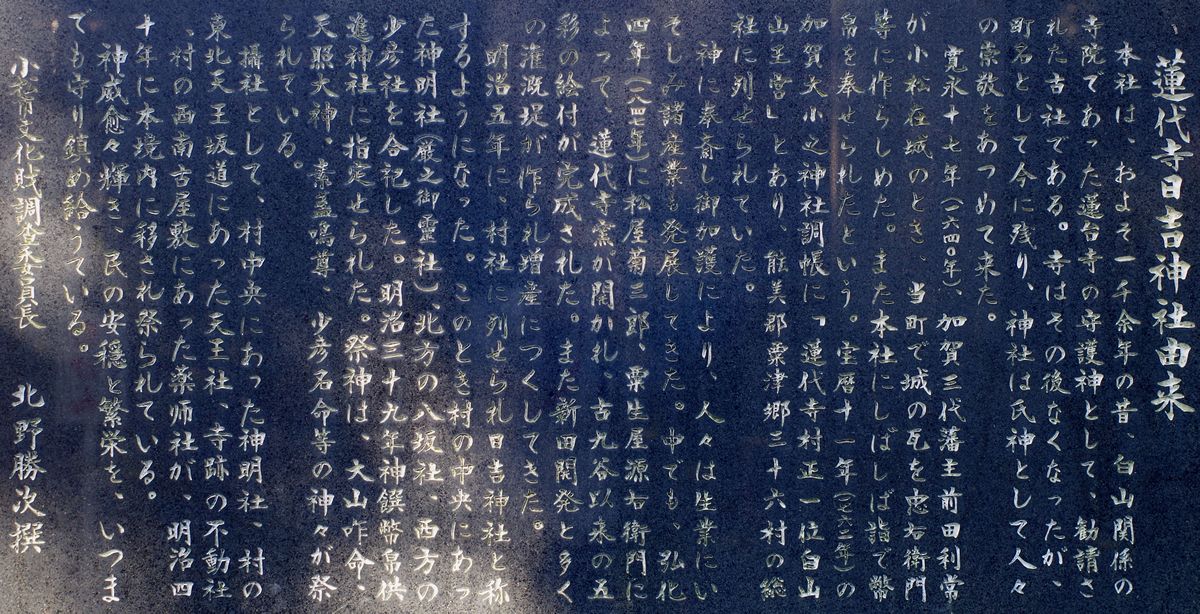 蓮代寺日吉神社由来
本社は、およそ一千余年の昔、白山関係の
寺院であった蓮台寺の守護神として、勧請さ
れた古社である。寺はその後なくなったが、
町名として今に残り、神社は氏神として人々
の崇敬をあつめて来た。
寛永十七年(一六四〇年)、加賀三代藩主前田利常
が小松在城のとき、当町で城の瓦を忠右衛門
等に作らしめた。また本社にしばしば詣で幣
帛を奉せられたという。宝暦十一年(一七六一年)の
加賀大小之神社調帳に「蓮代寺村正一位白山
山王宮」とあり、能美郡粟津郷三十六村の総
社に列せられていた。
神に奉斎し御加護により、人々は生業にい
そしみ諸産業も発展してきた。中でも、弘化
四年(一八四七年)に松屋菊三郎、粟生屋源右衛門に
よって、蓮代寺窯が開かれ、古九谷以来の五
彩の絵付が完成された。また新田開発と多く
の潅漑堤が作られ増産につくしてきた。
明治五年に、村社に列せられ日吉神社と称
するようになった。このとき村の中央にあっ
た神明社(厳之御霊社)、北方の八坂社、西方の
少彦社を合祀した。明治三十九年神饌幣帛供
進神社に指定せられた。祭神は、大山咋命、
天照大神、素盞鳴尊、少彦名命等の神々が祭
られている。
攝社として、村中央にあった神明社、村の
東北天王坂道にあった天王社、寺跡の不動社
、村の西南古屋敷にあった薬師社が、明治四
十年に本境内に移され祭られている。
神威愈々輝き、民の安穏と繁栄を、いつま
でも守り鎮め給うている。
小松市文化財調査委員長 北野勝次撰